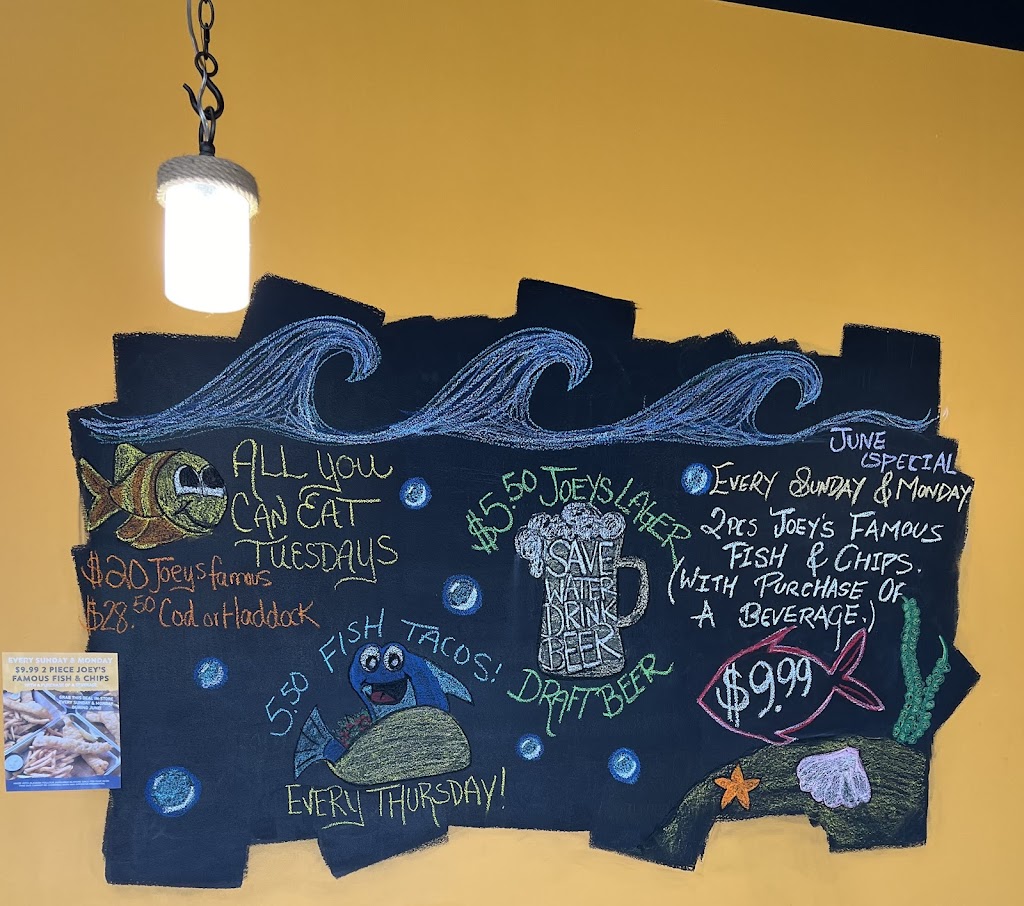 ALL YOU
CAN EAT
TUESDAYS
$20 Joeys famous
$28.50 Cod or Haddock
EVERY SUNDAY & MONDAY
$9.99 2 PIECE JOEY'S
FAMOUS FISH & CHIPS
GRAB THIS DEAL IN-STORE
EVERY SUNDAY & MONDAY
DURING JUNE!
FISH TACOS!
5.50
EVERY THURSDAY!
$5.50 JOEYS LAGER
SAVE
WATER
DRINK
BEER
DRAFT BEER
JUNE
SPECIAL
EVERY SUNDAY & MONDAY
2PCS JOEY'S FAMOUS
FISH & CHIPS.
(WITH PURCHASE OF
A BEVERAGE.)
$9.99